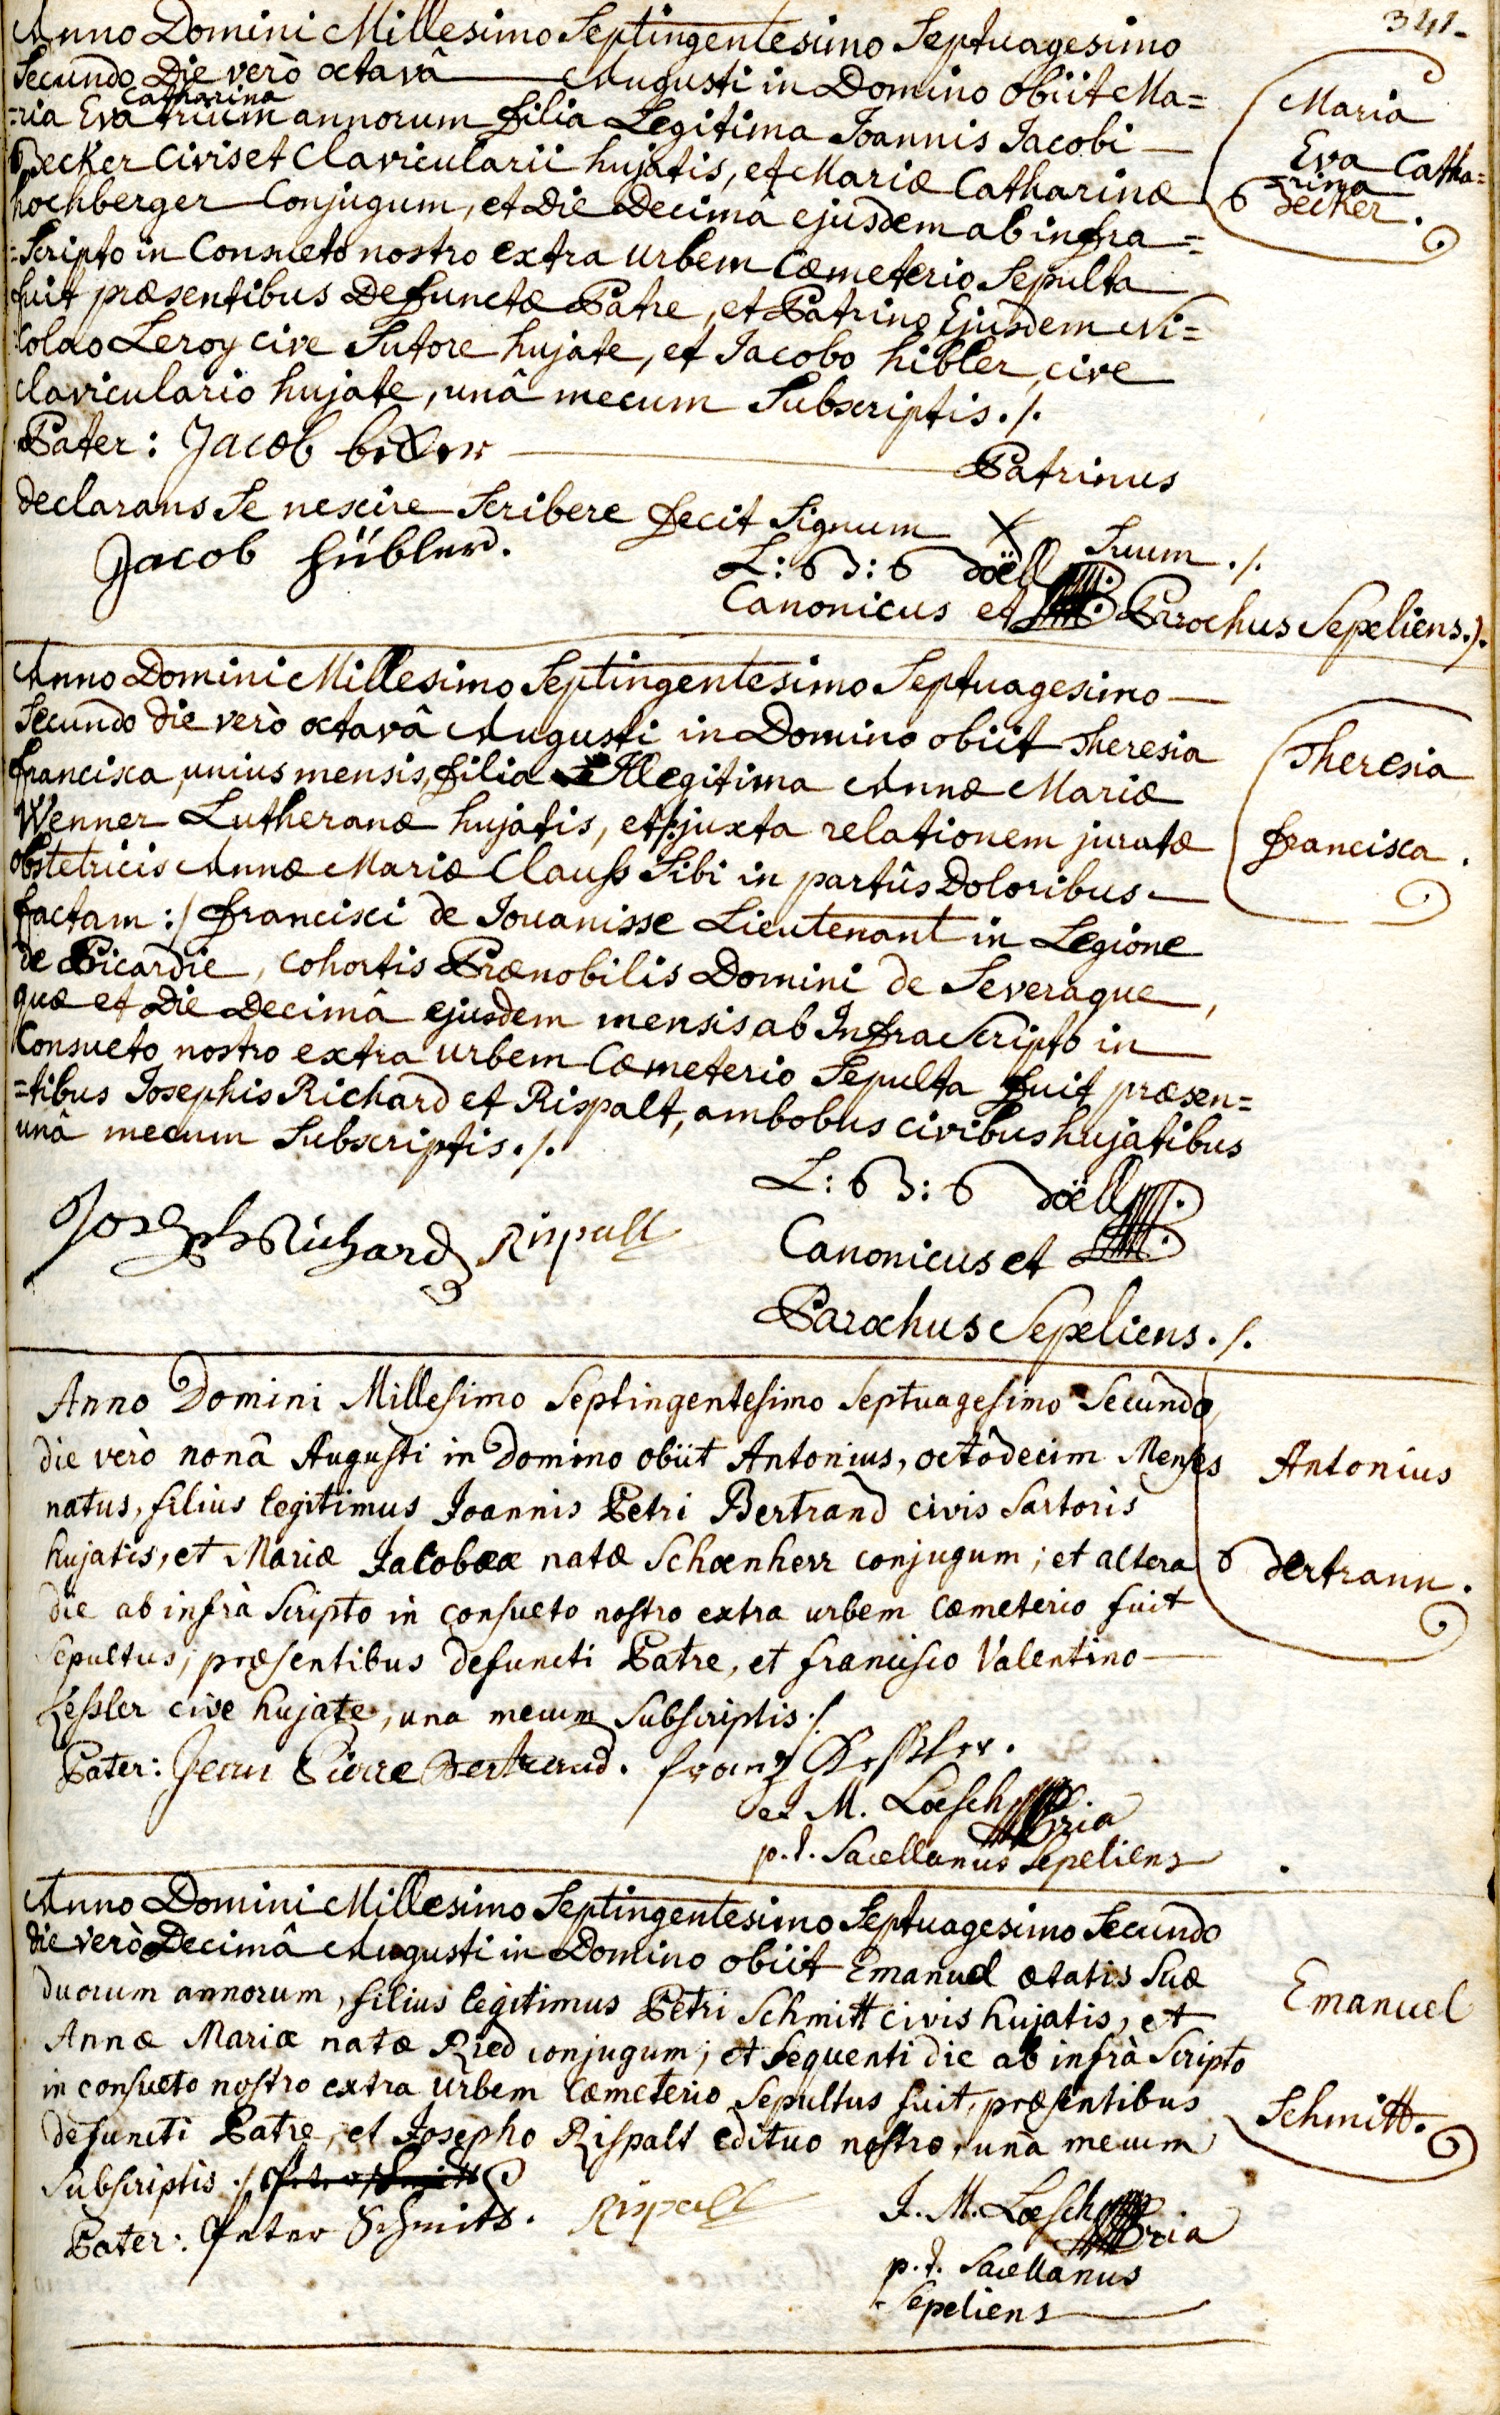 341.
Anno Domini Millesimo Septingentesimo Septuagesimo
Secundo Die verò octavâ Augusti in Domino obiit Ma=
Catharina
=ria Eva trium annorum filia Legitima Joannis Jacobi
Becker Civis et Clavicularii hujatis, et Mariæ Catharinæ
hochberger Conjugum, et Die Decimâ ejusdem ab infra=
=Scripto in Consueto nostro extra urbem Cœmeterio Sepulta
fuit præsentibus Defunctæ Patre, et Patrino Ejusdem Ni=
colao Leroy cive Sutore hujate, et Jacobo hibler, cive
claviculario hujate, unâ mecum Subscriptis ./.
Maria
Eva Catha=
=rina
Becker.
Pater: Jacob becker
Patrinus
declarans Se nescire Scribere fecit Signum X Suum ./.
Jacob hübler.
L: B: B doëll
Canonicus et Parochus Sepeliens ./.
Anno Domini Millesimo Septingentesimo Septuagesimo
Secundo die verò octavâ Augusti in Domino obiit Theresia
francisca, unius mensis, filia Illegitima Annæ Mariæ
Wenner Lutheranæ hujatis, et /:juxta relationem juratæ
obstetricis Annæ Mariæ Clauss Sibi in partûs Doloribus
factam :/ francisci de Jouanisse Lieutenant in Legione
de Picardie, cohortis Prænobilis Domini de Severague,
quæ et Die Decimâ ejusdem mensis ab InfraScripto in
Consueto nostro extra urbem Cœmeterio Sepulta fuit præsen=
=tibus Josephis Richard et Rispalt, ambobus civibus hujatibus
unâ mecum Subscriptis ./.
Theresia
francisca.
Joseph Richard Rispalt
L: B: B doëll
Canonicus et
Parochus Sepeliens ./.
Anno Domini Millesimo Septingentesimo Septuagesimo Secundo
die verò nonâ Augusti in Domino obiit Antonius, octôdecim Menses
natus, filius legitimus Joannis Petri Bertrand civis Sartoris
hujatis, et Mariæ Jacobææ natæ Schœnherr conjugum; et altera
die ab infrà Scripto in consueto nostro extra urbem cœmeterio fuit
sepultus, præsentibus defuncti Patre, et francisco Valentino
Kessler cive hujate, una mecum Subscriptis ./.
Antonius
Bertrann.
Pater: Jean Pierre Bertrand. franz Kessler.
J. M. Lœsch pria
p. t. Sacellanus Sepeliens
Anno Domini Millesimo Septingentesimo Septuagesimo Secundo
die verò Decimâ Augusti in Domino obiit Emanuel ætatis Suæ
duorum annorum, filius legitimus Petri Schmitt civis hujatis, et
Annæ Mariæ natæ Ried conjugum; et sequenti die ab infrà Scripto
in consueto nostro extra urbem cœmeterio Sepultus fuit, præsentibus
defuncti Patre, et Josepho Rispalt edituo nostro, unà mecum
Subscriptis ./.
Emanuel
Schmitt.
Pater: Peter Schmitt. Rispalt
J. M. Lœsch pria
p. t. Sacellanus
Sepeliens